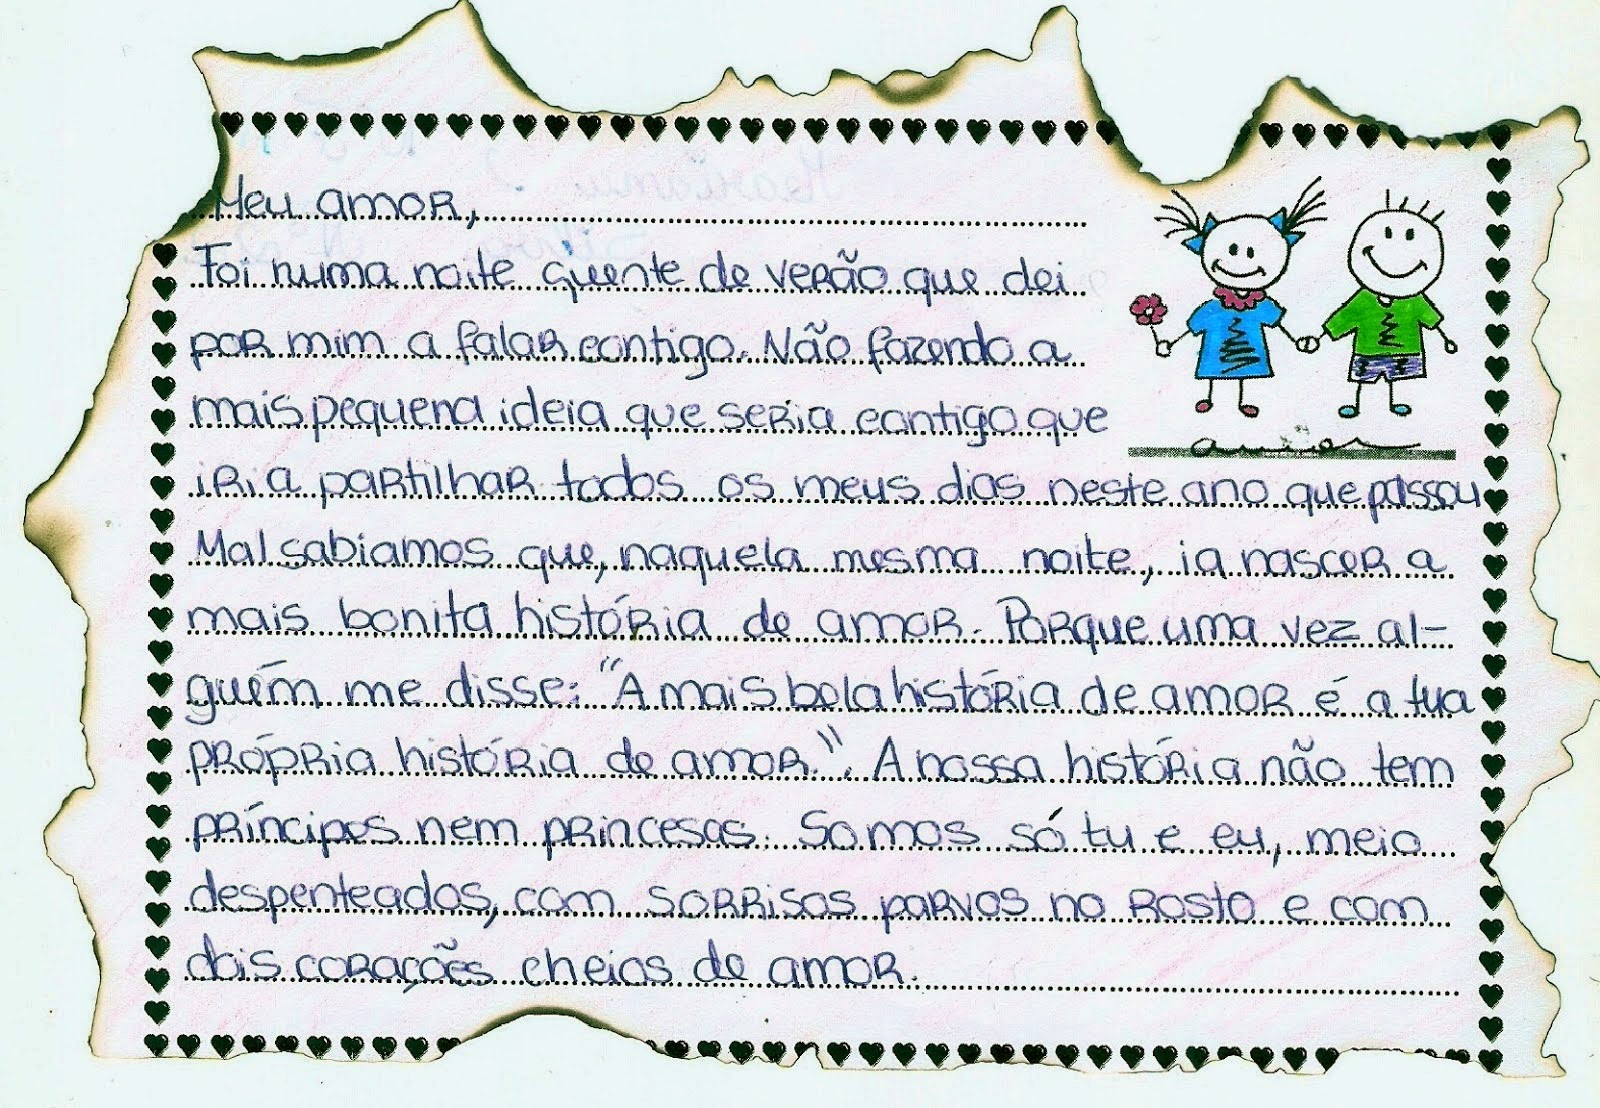 Meu amor,
Foi numa noite quente de verão que dei
por mim a falar contigo. Não fazendo a
mais pequena ideia que seria contigo que
iria partilhar todos os meus dias neste ano que passou
Mal sabiamos que, naquela mesma noite, ia nascer a
mais bonita história de amor. Porque uma vez al-
guém me disse: "A mais bela história de amor é a tua
própria história de amor.". A nossa história não tem
príncipes nem princesas. Somos só tu e eu, meio
despenteados, com sorrisos parvos no rosto e com
dois corações cheios de amor.